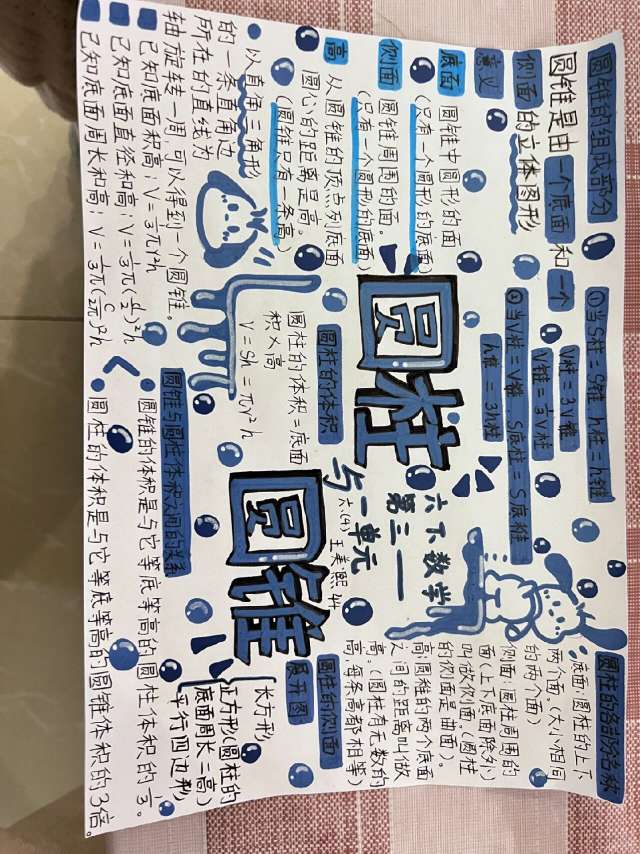 圆锥的组成部分
圆锥是由一个底面和一个
侧面的立体图形
意义
底面
圆锥中圆形的面
(只有一个圆形的底面)
侧面
圆锥周围的面。
(只有一个圆形的底面)
高
从圆锥的顶点到底面
圆心的距离是高。
(圆锥只有一条高)
以直角三角形
的一条直角边
所在的直线为
轴旋转一周,可以得到一个圆锥。
已知底面积高:V=⅓πr²h
已知底面直径和高:V=⅓π(d/2)²h
已知底面周长和高:V=⅓π(C/2π)²h
①当S柱=S锥 h柱=h锥
V柱=3V锥
V锥=⅓V柱
②当V柱=V锥 S底柱=S底锥
h锥=3h柱
圆柱
与
圆锥
六下数学
第三一
一单元
六.(4) 王美熙 44
圆柱的体积
圆柱的体积=底面
积×高
V=Sh=πr²h
圆柱的各部名称
底面:圆柱的上下
两个面。(大小相同
的两个面)
侧面:圆柱周围的
面(上下底面除外)
叫做侧面。(圆柱
的侧面是曲面)。
高:圆柱的两个底面
之间的距离叫做
高。(圆柱有无数的
高,每条高都相等)
圆柱的侧面
展开图
长方形
正方形(圆柱的
底面周长=高)
平行四边形
圆锥与圆柱体积之间的关系
圆锥的体积是与它等底等高的圆柱体积的⅓。
圆柱的体积是与它等底等高的圆锥体积的3倍。